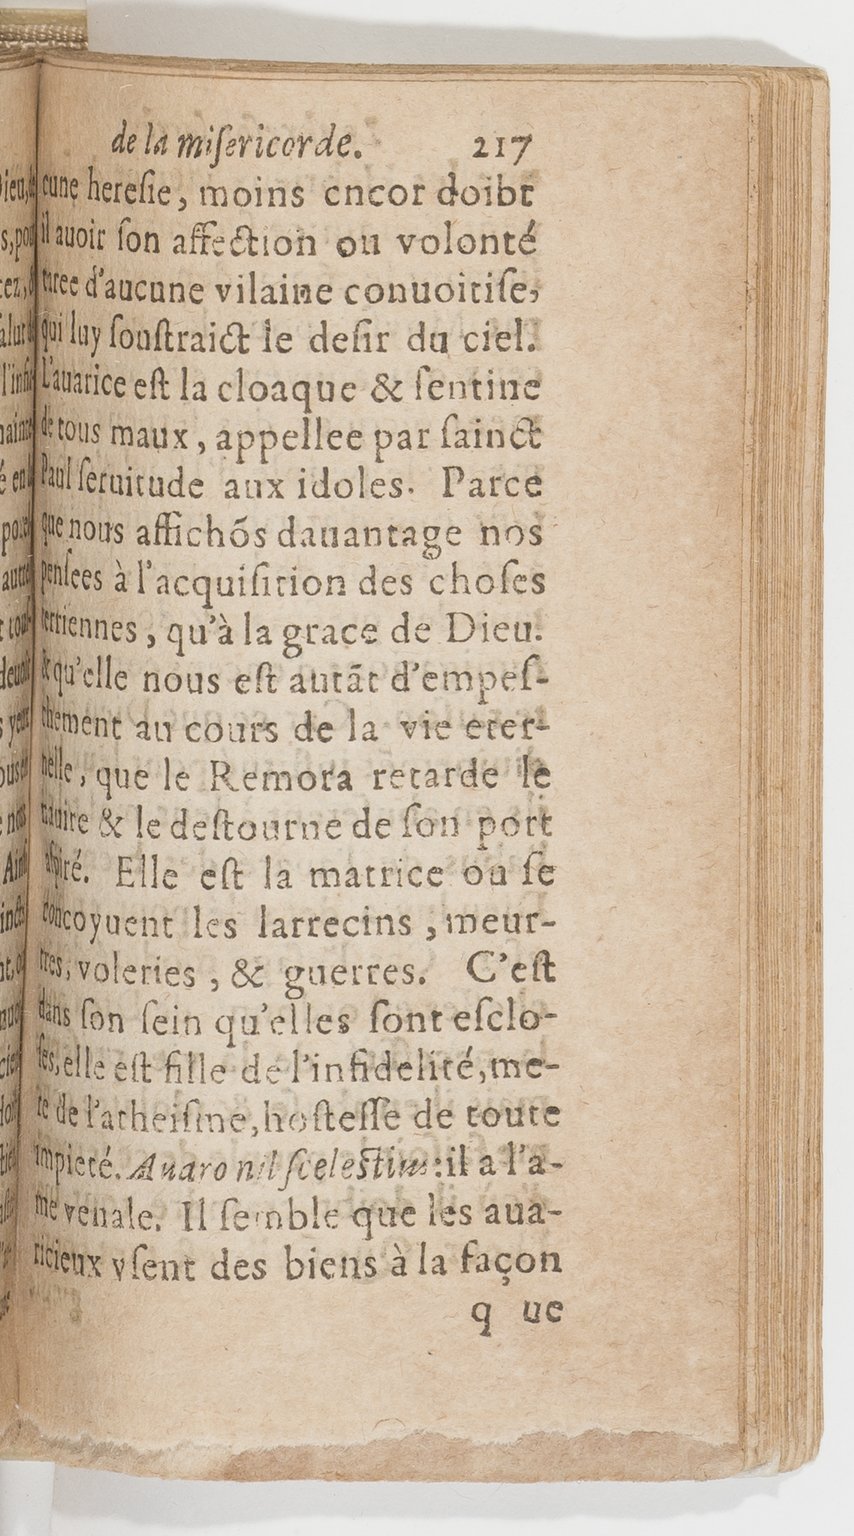 de la miſericorde. 217
cune hereſie, moins encor doibt
il auoir ſon affection ou volonté
tiree d'aucune vilaine conuoitiſe,
qui luy ſouſtraict le deſir du ciel.
L'auarice eſt la cloaque & ſentine
de tous maux, appellee par ſainct
Paul ſeruitude aux idoles. Parce
que nous affichõs dauantage nos
penſees à l'acquiſition des choſes
terriennes, qu'à la grace de Dieu.
& qu'elle nous eſt autãt d'empeſ-
chement au cours de la vie eter-
nelle, que le Remora retarde le
nauire & le deſtourne de ſon port
aſpiré. Elle eſt la matrice ou ſe
concoyuent les larrecins, meur-
tres, voleries, & guerres. C'eſt
dans ſon ſein qu'elles ſont eſclo-
ſes, elle eſt fille de l'infidelité, me-
re de l'atheiſme, hoſteſſe de toute
impieté. Auaro nil ſceleſtius: il a l'a-
me venale. Il ſemble que les aua-
ricieux vſent des biens à la façon
que